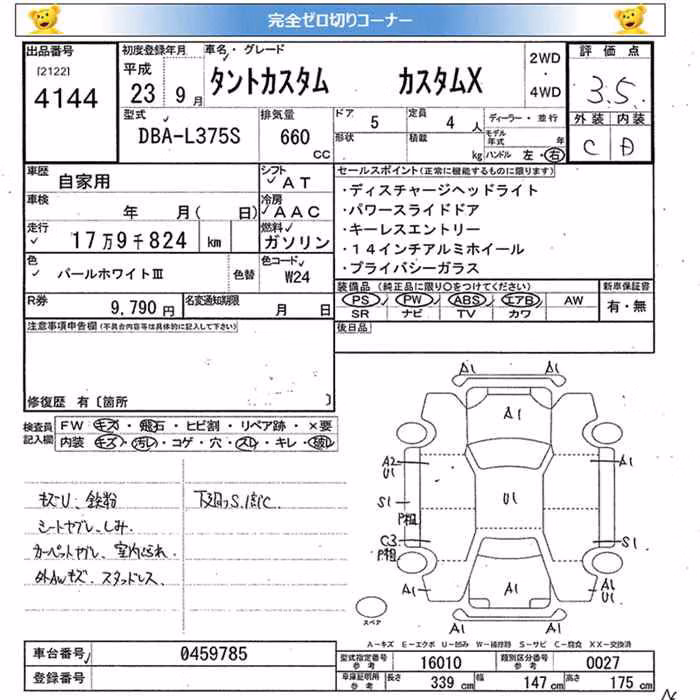 完全ゼロ切りコーナー
出品番号
[2122]
4144
初度登録年月
平成
23 9月
車名・グレード
タントカスタム カスタムX
2WD
・
4WD
評価点
3.5
外装 内装
C D
型式
DBA-L375S
排気量
660
cc
ドア 5
定員 4 人
形状
積載 kg
ディーラー・並行
モデル年式 年
ハンドル 左・右
車歴
自家用
シフト
AT
車検
年 月( 日)
冷房
AAC
走行
17万9千824 km
燃料
ガソリン
色
パールホワイトⅢ
色替
色コード
W24
R券
9,790円
名変通知期限
月 日
セールスポイント(正常に機能するものに限ります)
・ディスチャージヘッドライト
・パワースライドドア
・キーレスエントリー
・14インチアルミホイール
・プライバシーガラス
装備品 (純正品に限り○をつけてください)
PS PW ABS エアB AW
SR ナビ TV カワ
新車保証書
有・無
後日品
注意事項申告欄(不具合内容等は具体的に記入して下さい)
修復歴 有〔箇所 〕
検査員記入欄
FW キズ・飛石・ヒビ割・リペア跡・×要
内装 キズ・汚レ・コゲ・穴・スレ・キレ・破レ
キズU、鉄粉
下廻りS.信C.
シートヤブレ、しみ.
カーペットヤブレ、室内よごれ.
外AWキズ、スタッドレス.
A1 A1
A1
A2
U1
A1
S1
U1
P粗
C3
P粗
S1
A1
A1
A1
U1
A1 A1
スペア
A-キズ E-エクボ U-凹み W-補修跡 S-サビ C-腐食 XX-交換済
車台番号
0459785
登録番号
型式指定番号
参考
16010
類別区分番号
参考
0027
車庫証明用
参考
長さ 339 cm
幅 147 cm
高さ 175 cm